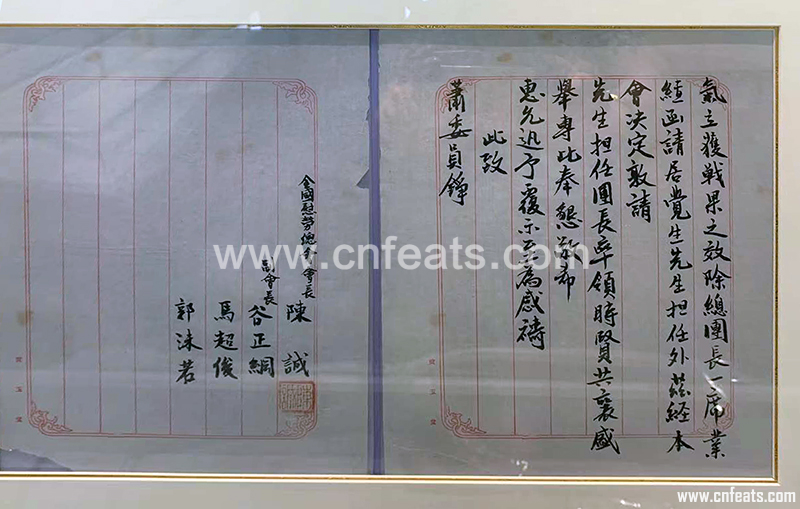 氣立獲戰果之效除總團長一席業
經函請居覺生先生担任外茲經本
會決定敦請
先生担任團長率領時賢共襄盛
舉專此奉懇敬希
惠允迅予覆示至為感禱
此致
蕭委員錚
全國慰勞總會會長 陳誠
副會長 谷正綱
馬超俊
郭沫若
www.cnfeats.com
www.cnfeats.com